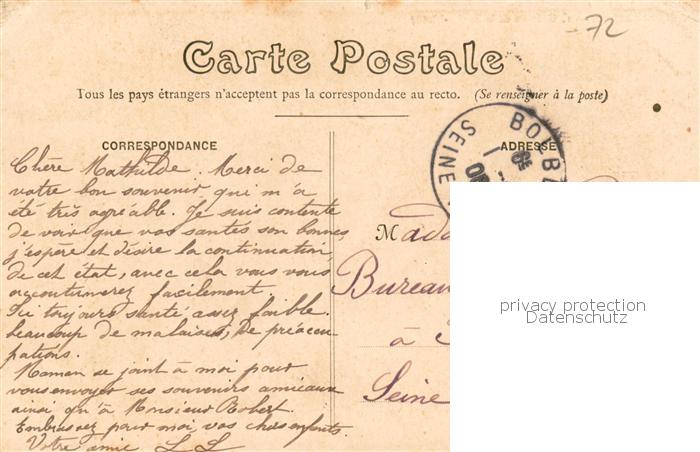 -72
Carte Postale
Tous les pays étrangers n'acceptent pas la correspondance au recto. (Se renseigner à la poste)
CORRESPONDANCE
ADRESSE
SEINE
Chère Mathilde. Merci de
votre bon souvenir qui m'a
été très agréable. Je suis contente
de voir que vos santés son bonnes,
j'espère et désire la continuation
de cet état, avec cela vous vous
accoutumerez facilement.
Ici toujours santé assez faible.
beaucoup de malaises, de préoccu-
pations.
Maman se joint à moi pour
vous envoyer ses souvenirs amicaux
ainsi qu'à Monsieur Robert.
Embrassez pour moi vos chers enfants.
Votre amie L L
Mada
Bureau
à
Seine
privacy protection
Datenschutz